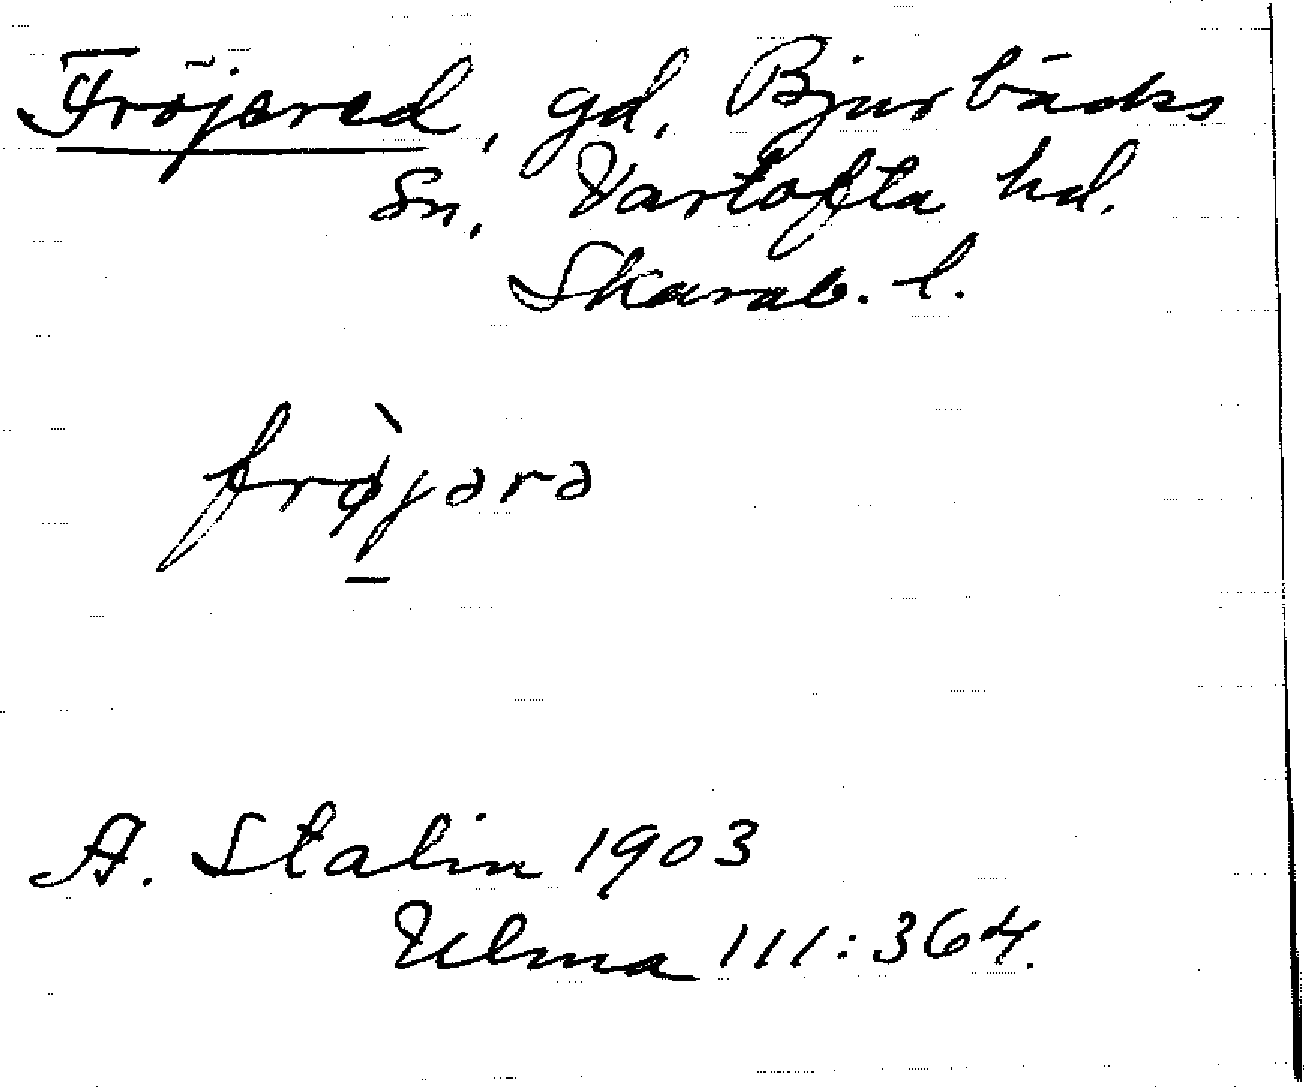 Fröjered, gd, Bjurbäcks
Sn, Vartofta hd.
Skarab. l.
frø̀jərə
A. Stalin 1903
Ulma 111:364.